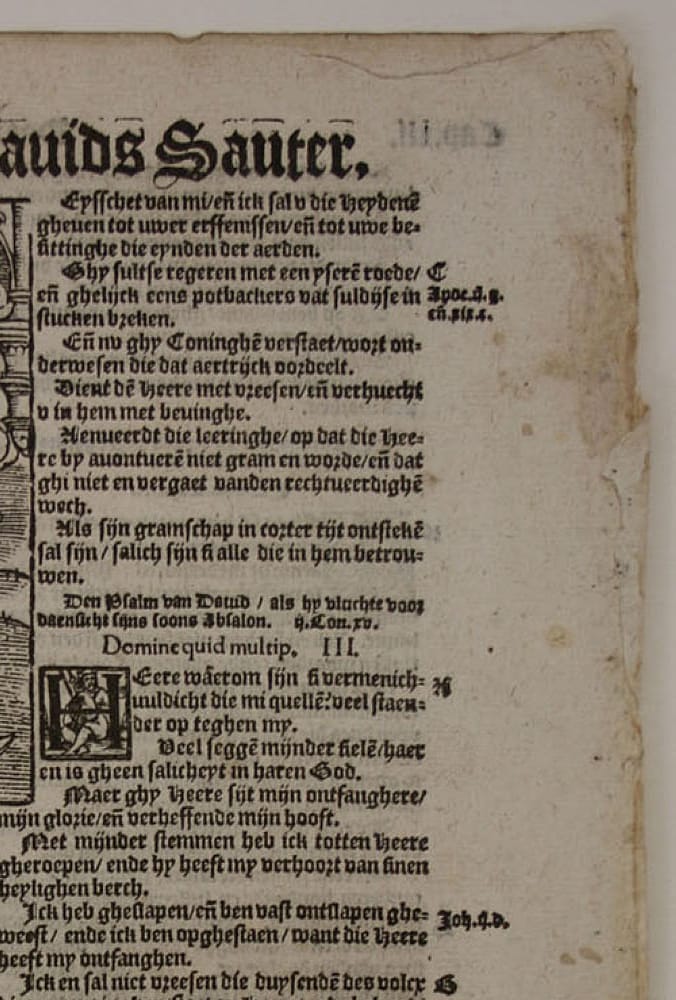 auids Sauter.
Eysschet van mi/en̄ ick sal v die Heydenē
gheuen tot uwer erffenissen/en̄ tot uwe be⸗
sittinghe die eynden der aerden.
Ghy sultse regeren met een yserē roede/ C
en̄ ghelijck eens potbackers vat suldijse in Apoc.ij.g.
stucken breken. en̄.xix.c.
En̄ nv ghy Coninghē verstaet/wort on⸗
derwesen die dat aertrijck oordeelt.
Dient dē Heere met vreesen/en̄ verhuecht
v in hem met beuinghe.
Aenueerdt die leeringhe/op dat die Hee⸗
re by auontuerē niet gram en worde/en̄ dat
ghi niet en vergaet vanden rechtueerdighē
wech.
Als sijn gramschap in corter tijt ontstekē
sal sijn/ salich sijn si alle die in hem betrou⸗
wen.
Den Psalm van Dauid / als hy vluchte voor
daensicht sijns soons Absalon. ij.Con.xv.
Domine quid multip. III.
HEere wāerom sijn si vermenich⸗ A
uuldicht die mi quellē? veel staen⸗
der op teghen my.
Veel seggē mijnder sielē/haer
en is gheen salicheyt in haren God.
Maer ghy Heere sijt mijn ontfanghere/
mijn glorie/en̄ verheffende mijn hooft.
Met mijnder stemmen heb ick totten Heere
gheroepen/ ende hy heeft my verhoort van sinen
heylighen berch.
Ick heb gheslapen/en̄ ben vast ontslapen ghe⸗ Joh.ij.d.
weest/ ende ick ben opghestaen/want die Heere
heeft my ontfanghen.
Ick en sal niet vreesen die duysendē des volcx B